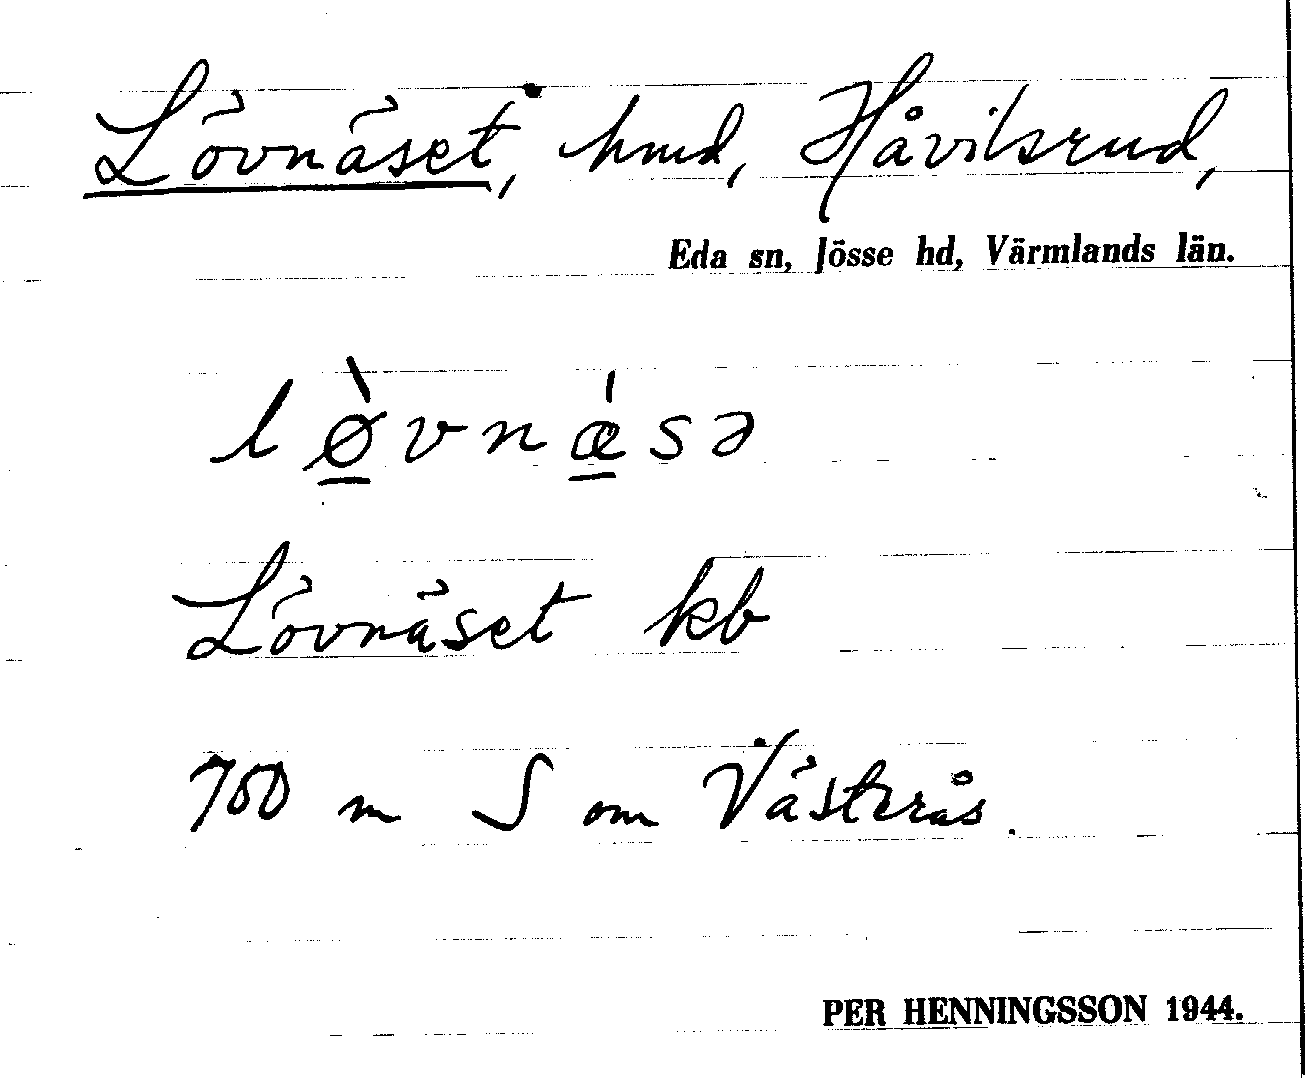 Lövnäset, hmd, Håvilsrud,
Eda sn, Jösse hd, Värmlands län.
lø̀vnǽsə
Lövnäset kb
700 m S om Västerås.
PER HENNINGSSON 1944.